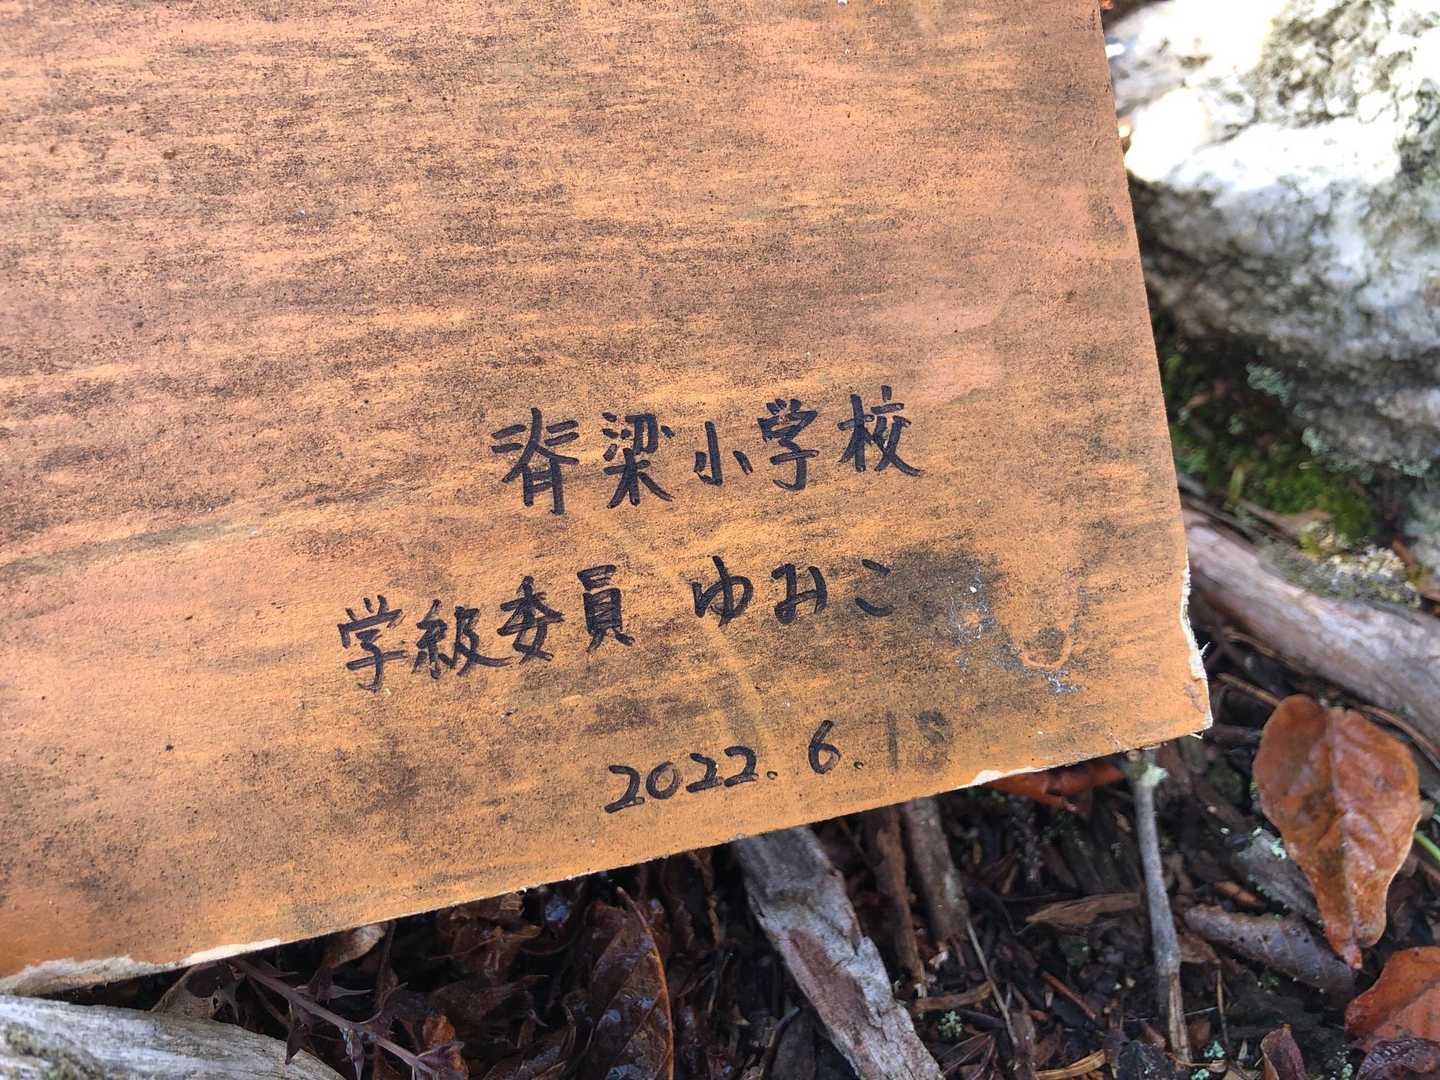 脊梁小学校
学級委員 ゆみこ
2022.6.